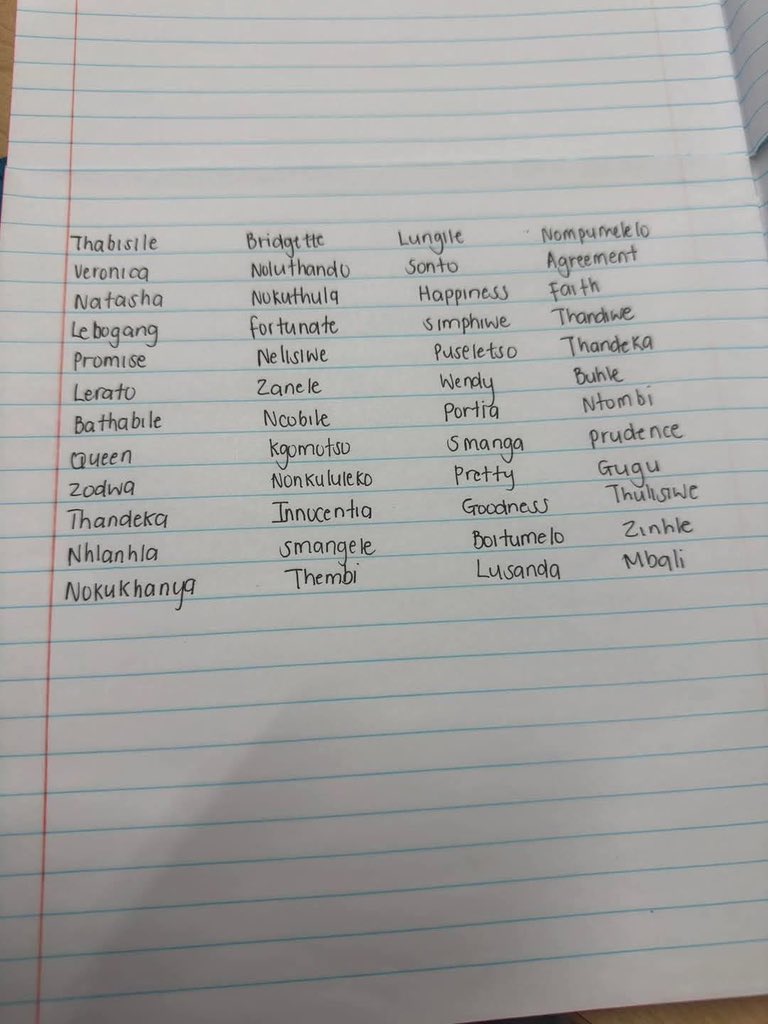 Thabisile Bridgette Lungile Nompumelelo
Veronica Noluthando Sonto Agreement
Natasha Nokuthula Happiness Faith
Lebogang Fortunate Simphiwe Thandiwe
Promise Nelisiwe Puseletso Thandeka
Lerato Zanele Wendy Buhle
Bathabile Ncobile Portia Ntombi
Queen Kgomotso Smanga prudence
Zodwa Nonkululeko Pretty Gugu
Thandeka Innocentia Goodness Thulisiwe
Nhlanhla Smangele Boitumelo Zinhle
Nokukhanya Thembi Lusanda Mbali